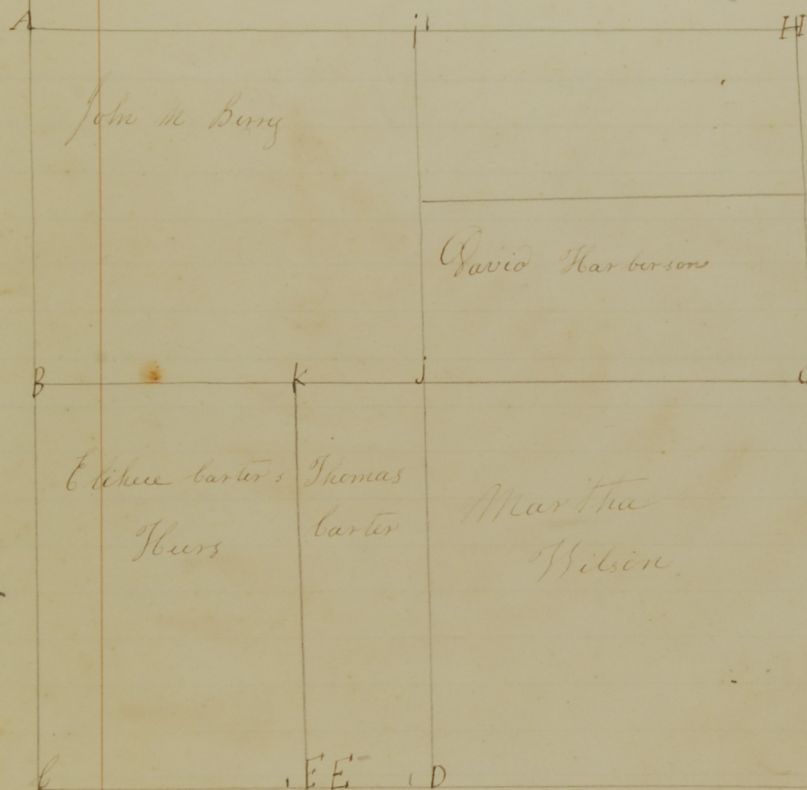 A i H
John M Berry
David Harberson
B K J
Elihue Carters
Heirs
Thomas
Carter
Martha
Wilson
C E E D